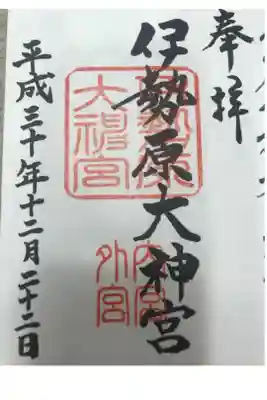 奉拝
伊勢原大神宮
伊勢原
大神宮
内宮
外宮
平成三十年十二月二十二日